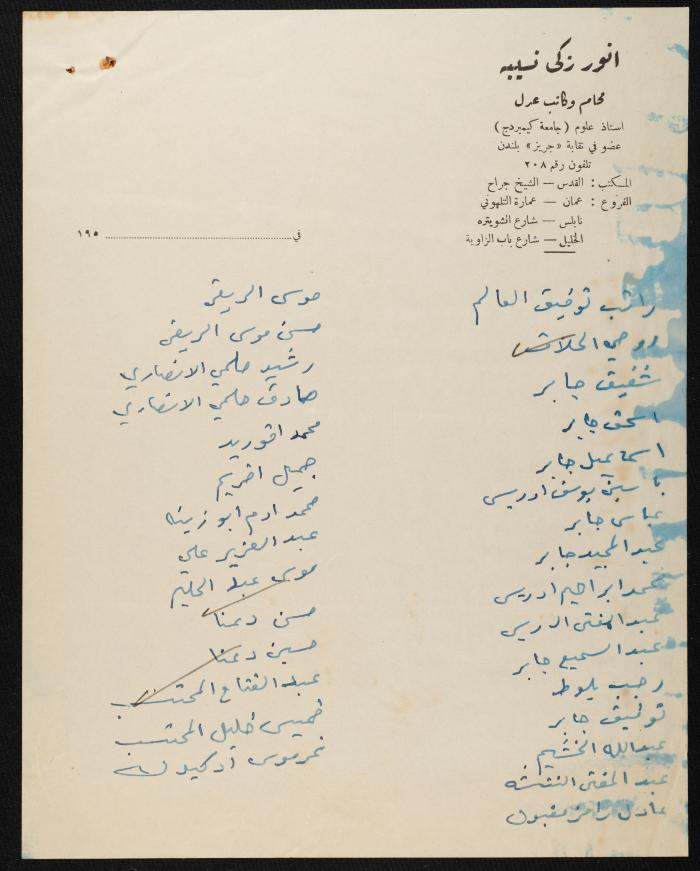 انور زكي نسيبه
محام وكاتب عدل
استاذ علوم (جامعة كيمبردج)
عضو في نقابة «جريز» بلندن
تلفون رقم ٢٠٨
المكتب : القدس — الشيخ جراح
الفروع : عمان — عمارة التلهوني
نابلس — شارع الشويتره
الخليل — شارع باب الزاوية
في ١٩٥
راتب توفيق العالم
روحي
شفيق جابر
اسحق جابر
اسماعيل جابر
ياسين يوسف ادريس
عباس جابر
عبد المجيد جابر
محمد ابراهيم ادريس
ادريس
عبد السميع جابر
رجب بلوط
توفيق جابر
عبدالله الخشيم
عبد النتشه
عادل
موسى
حسن موسى
رشيد حلمي الانصاري
صادق حلمي الانصاري
محمد
جميل
محمد ادم ابو زينه
عبد العزيز علي
موسى عبد الحليم
حسن دعنا
حسين دعنا
عبد الفتاح المحتسب
خميس خليل المحتسب
نمر موسى